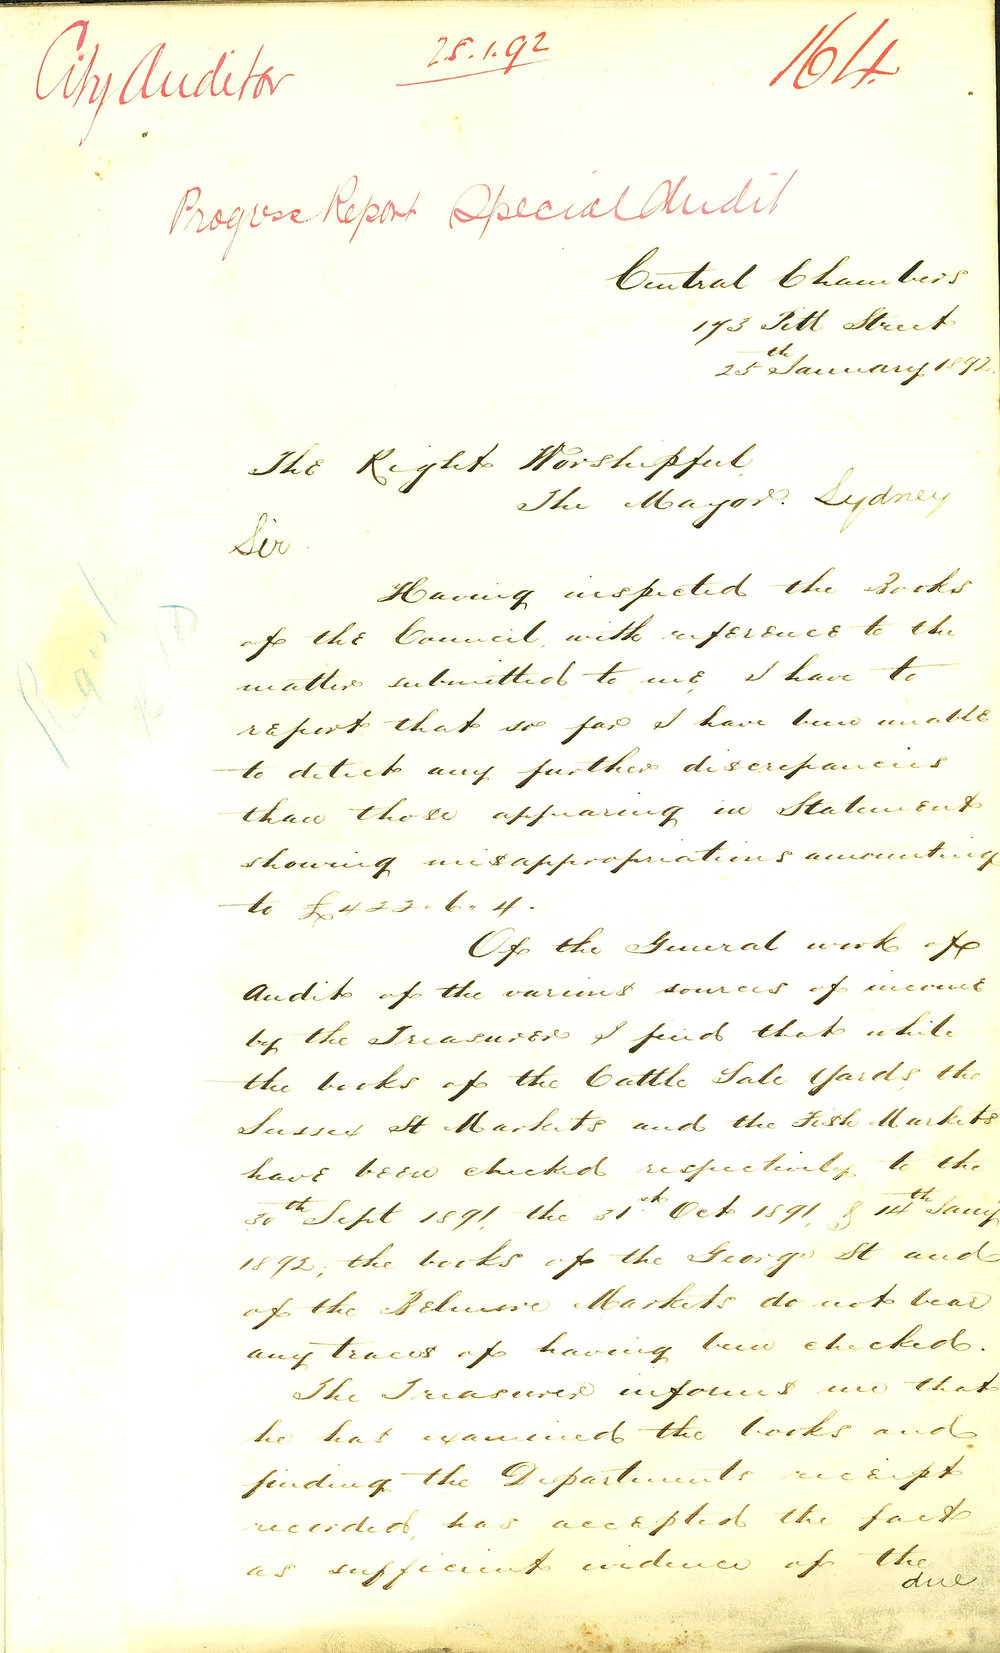 City Auditor
25.1.92
164
Progress Report Special Audit
Central Chambers
173 Pitt Street
25th January 1892.
The Right Worshipful
The Mayor. Sydney
Sir
Having inspected the Books
of the Council, with reference to the
matter submitted to me, I have to
report that so far I have been unable
to detect any further discrepancies
than those appearing in Statement
showing misappropriations amounting
to £422.6.4.
Of the General work of
Audit of the various sources of income
by the Treasurer I find that while
the books of the Cattle Sale Yards, the
Sussex St Markets and the Fish Markets
have been checked respectively to the
30th Sept 1891, the 31st Oct 1891, & 14th Jany
1892; the books of the George St and
of the Belmore Markets do not bear
any traces of having been checked.
The Treasurer informs me that
he has examined the books and
finding the Departments receipt
recorded, has accepted the fact
as sufficient evidence of the
due